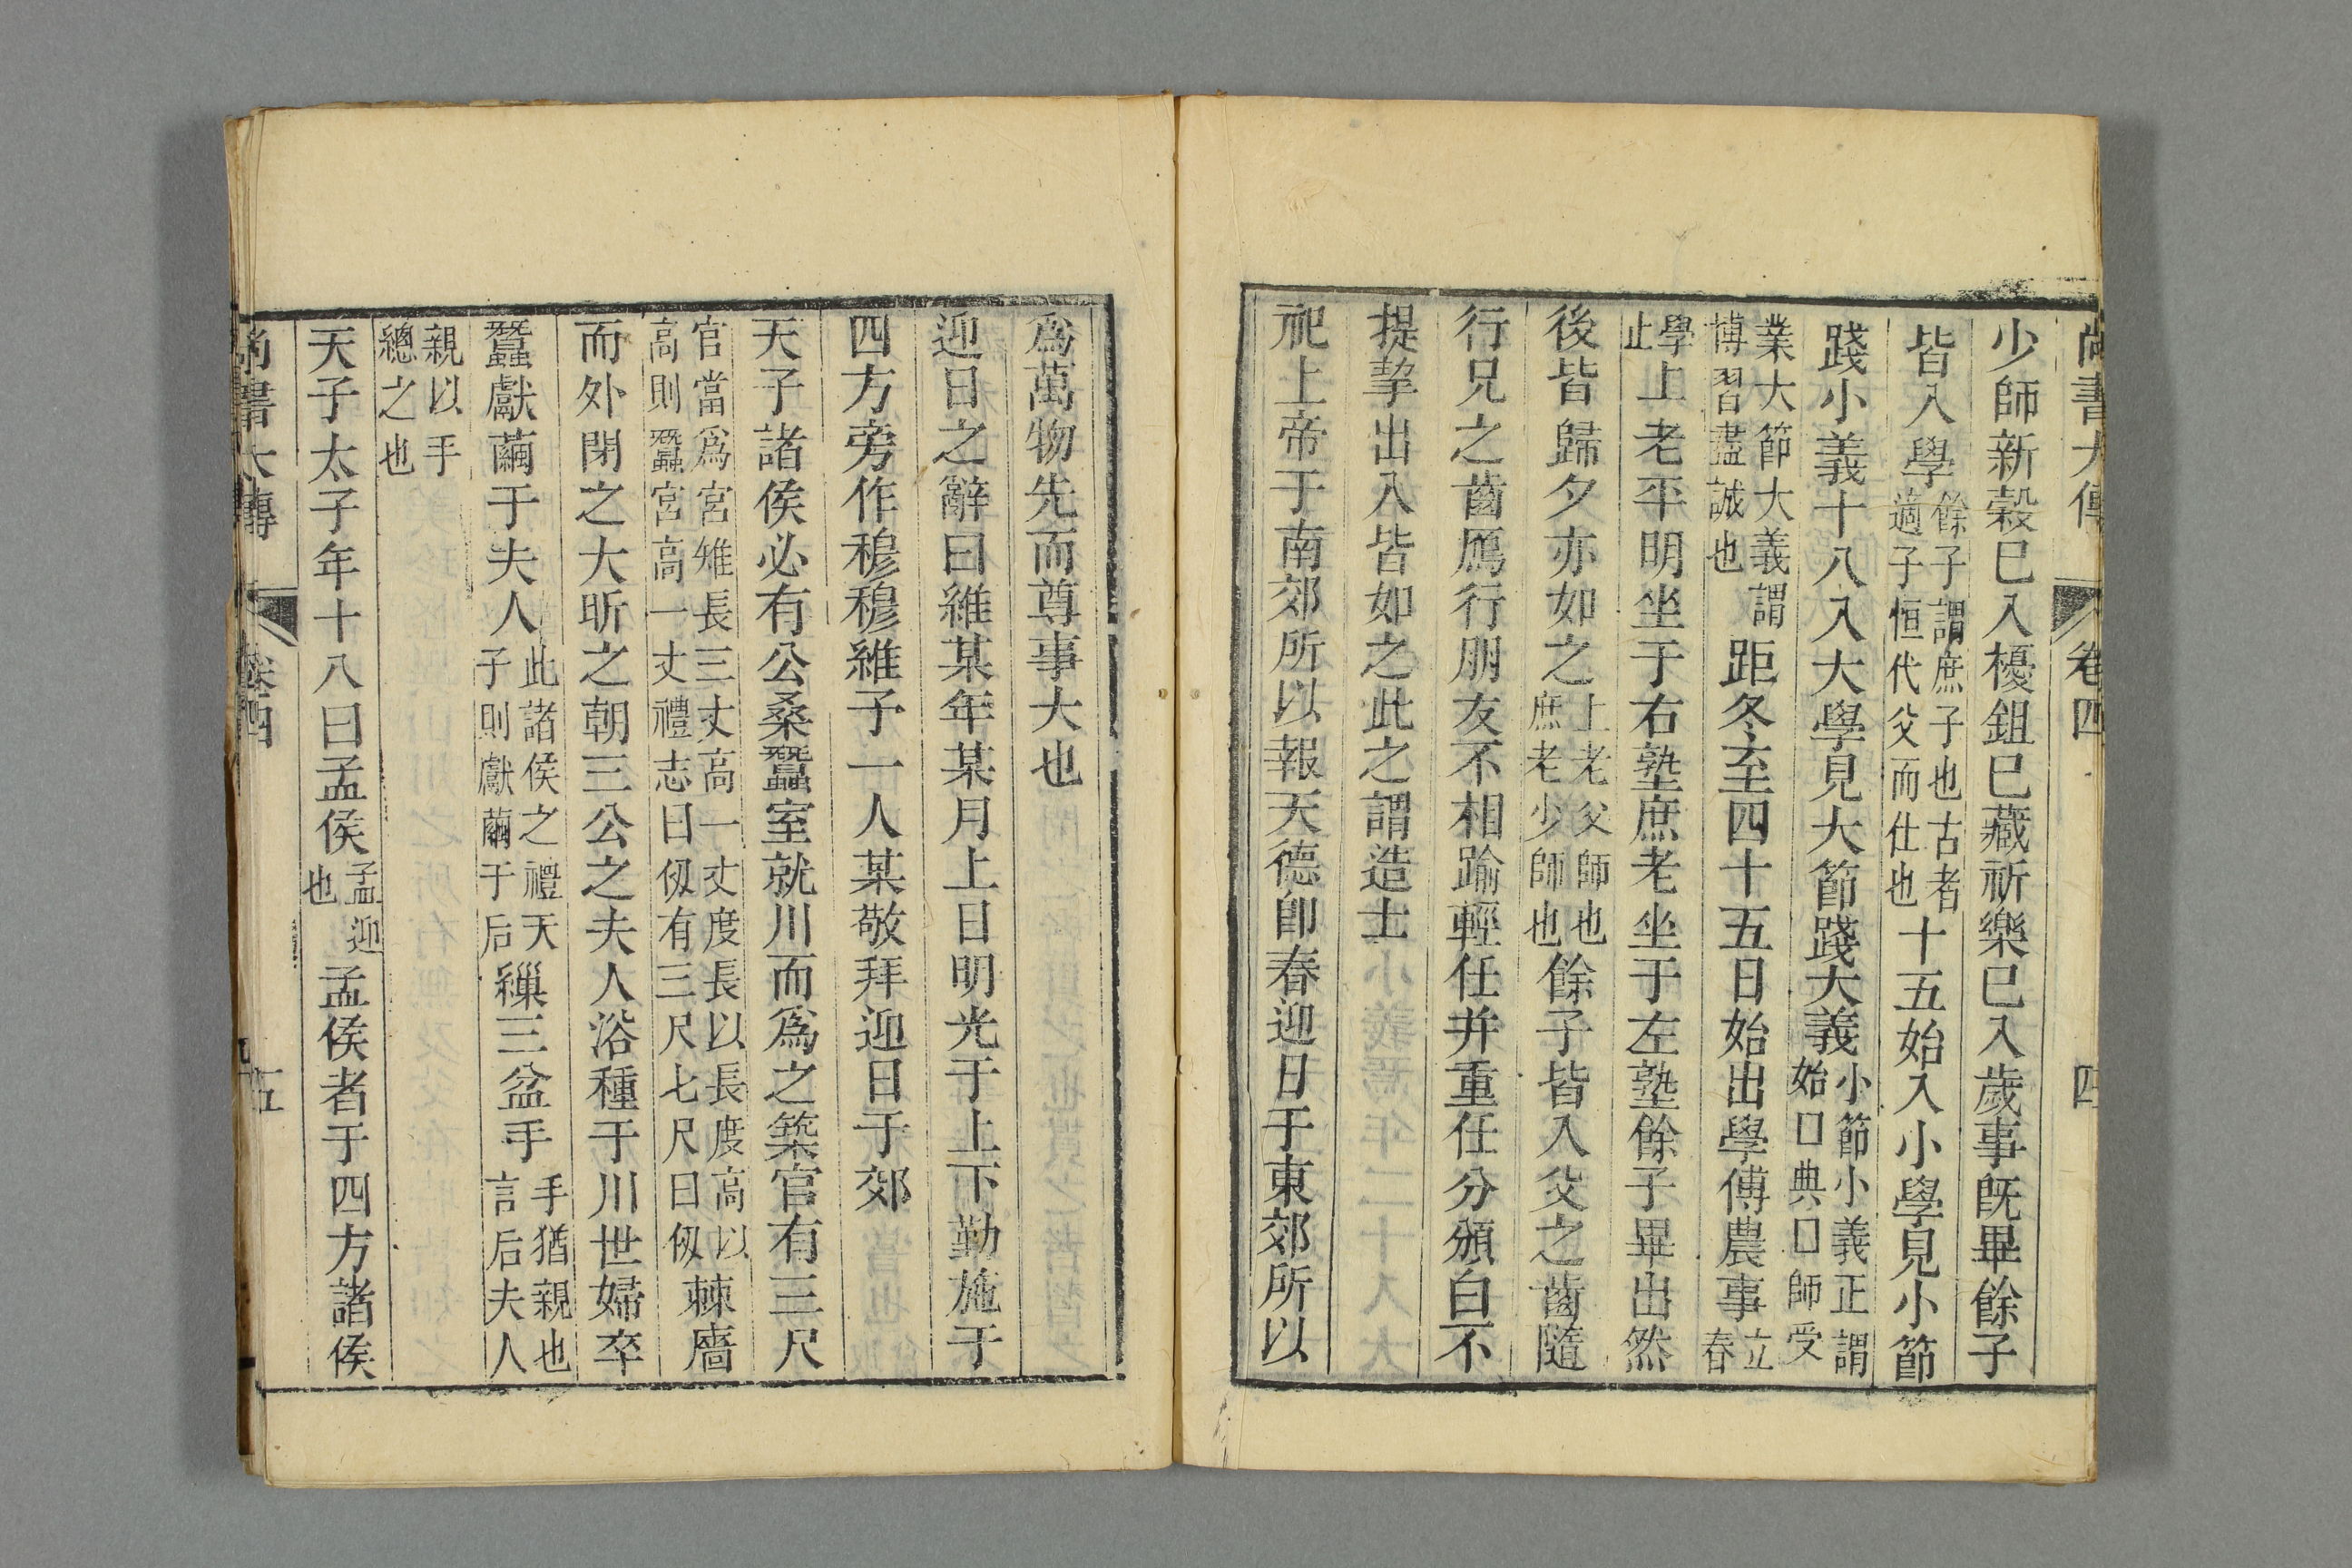 尚書大傳 卷四 四
少師新穀已入耰鉏已藏祈樂已入歲事既畢餘子
皆入學餘子謂庶子也古者適子恒代父而仕也十五始入小學見小節
踐小義十八入大學見大節踐大義小節小義正謂始□典□師受
業大節大義謂博習盡誠也距冬至四十五日始出學傅農事立春
學止上老平明坐于右塾庶老坐于左塾餘子畢出然
後皆歸夕亦如之上老父師也庶老少師也餘子皆入父之齒隨
行兄之齒鴈行朋友不相踰輕任并重任分頒白不
提挈出入皆如之此之謂造士
祀上帝于南郊所以報天德卽春迎日于東郊所以
爲萬物先而尊事大也
迎日之辭曰維某年某月上日明光于上下勤施于
四方旁作穆穆維予一人某敬拜迎日于郊
天子諸侯必有公桑蠶室就川而爲之築官有三尺
官當爲宮雉長三丈高一丈度長以長度高以高則蠶宮高一丈禮志曰仭有三尺七尺曰仭棘牆
而外閉之大昕之朝三公之夫人浴種于川世婦卒
蠶獻繭于夫人此諸侯之禮天子則獻繭于后繅三盆手手猶親也言后夫人
親以手總之也
天子太子年十八曰孟侯孟迎也孟侯者于四方諸侯
尚書大傳 卷四 五